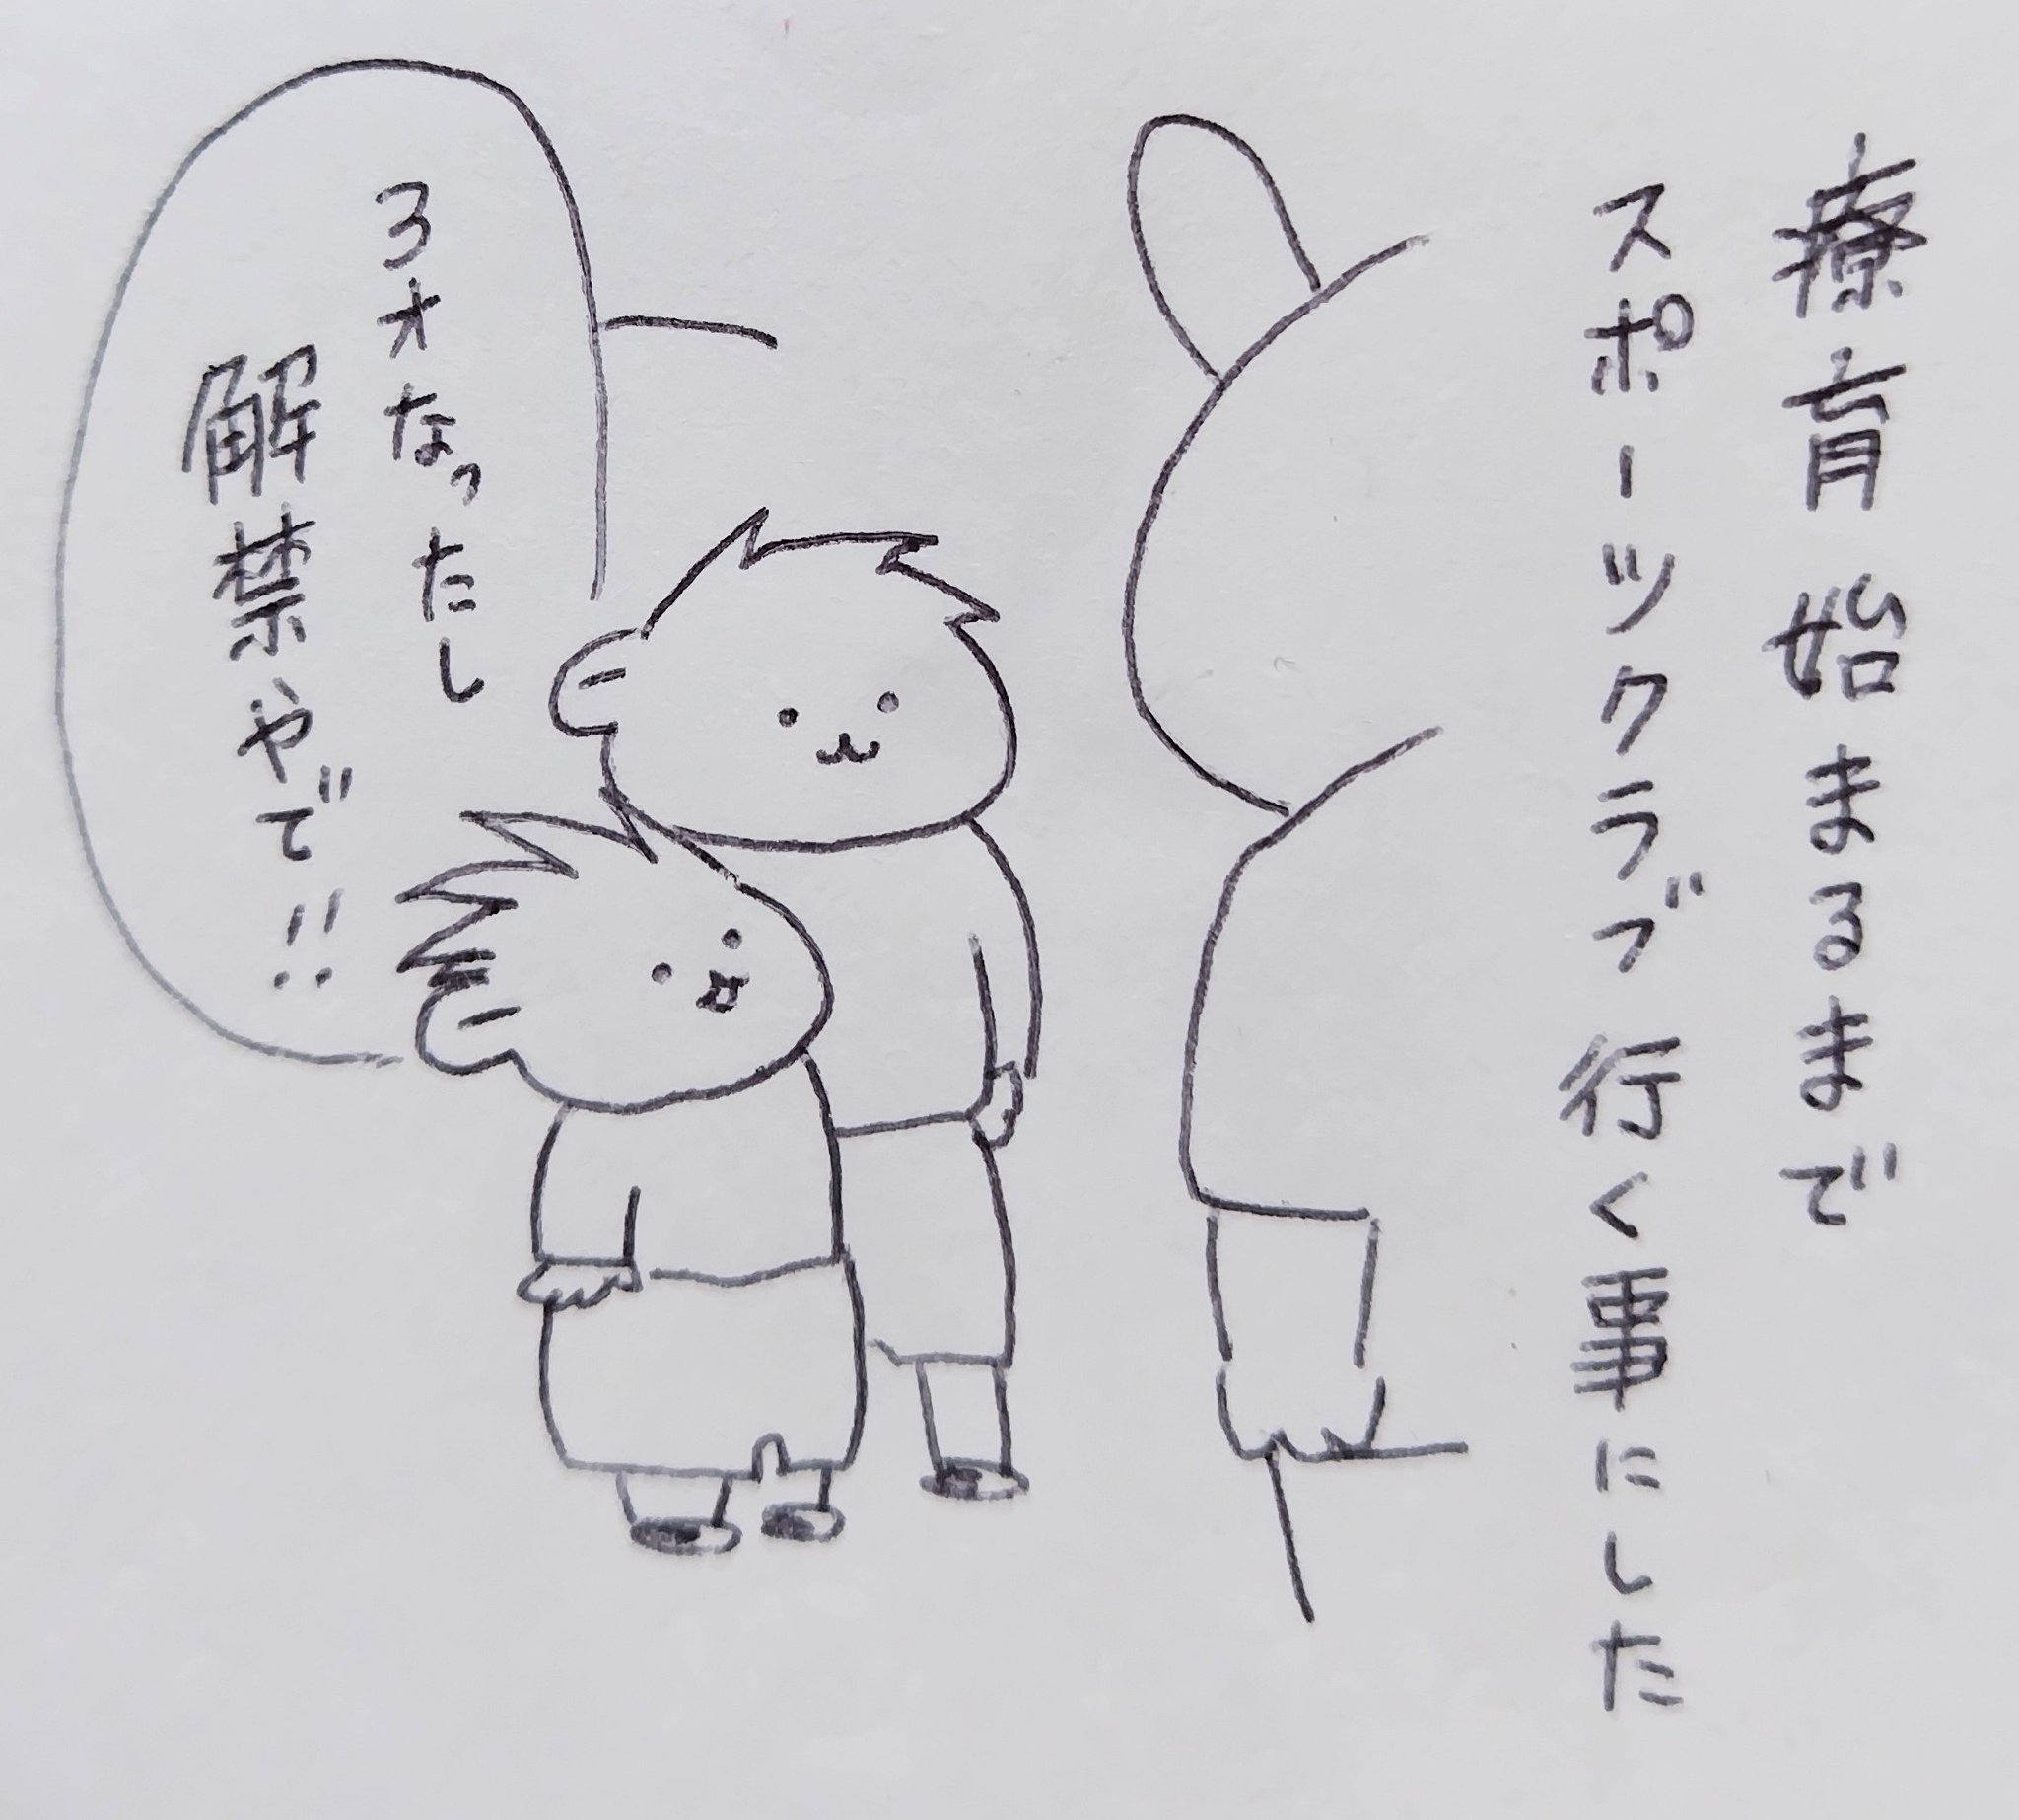 療育始まるまで
スポーツクラブ行く事にした
3才なったし
解禁やで!!